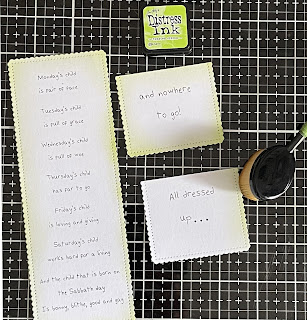 Monday's child
is fair of face
Tuesday's child
is full of grace
Wednesday's child
is full of woe
Thursday's child
has far to go
Friday's child
is loving and giving
Saturday's child
works hard for a living
And the child that is born on
the Sabbath day
Is bonny, blithe, good and gay
Distress
Ink
and nowhere
to go!
All dressed
up...